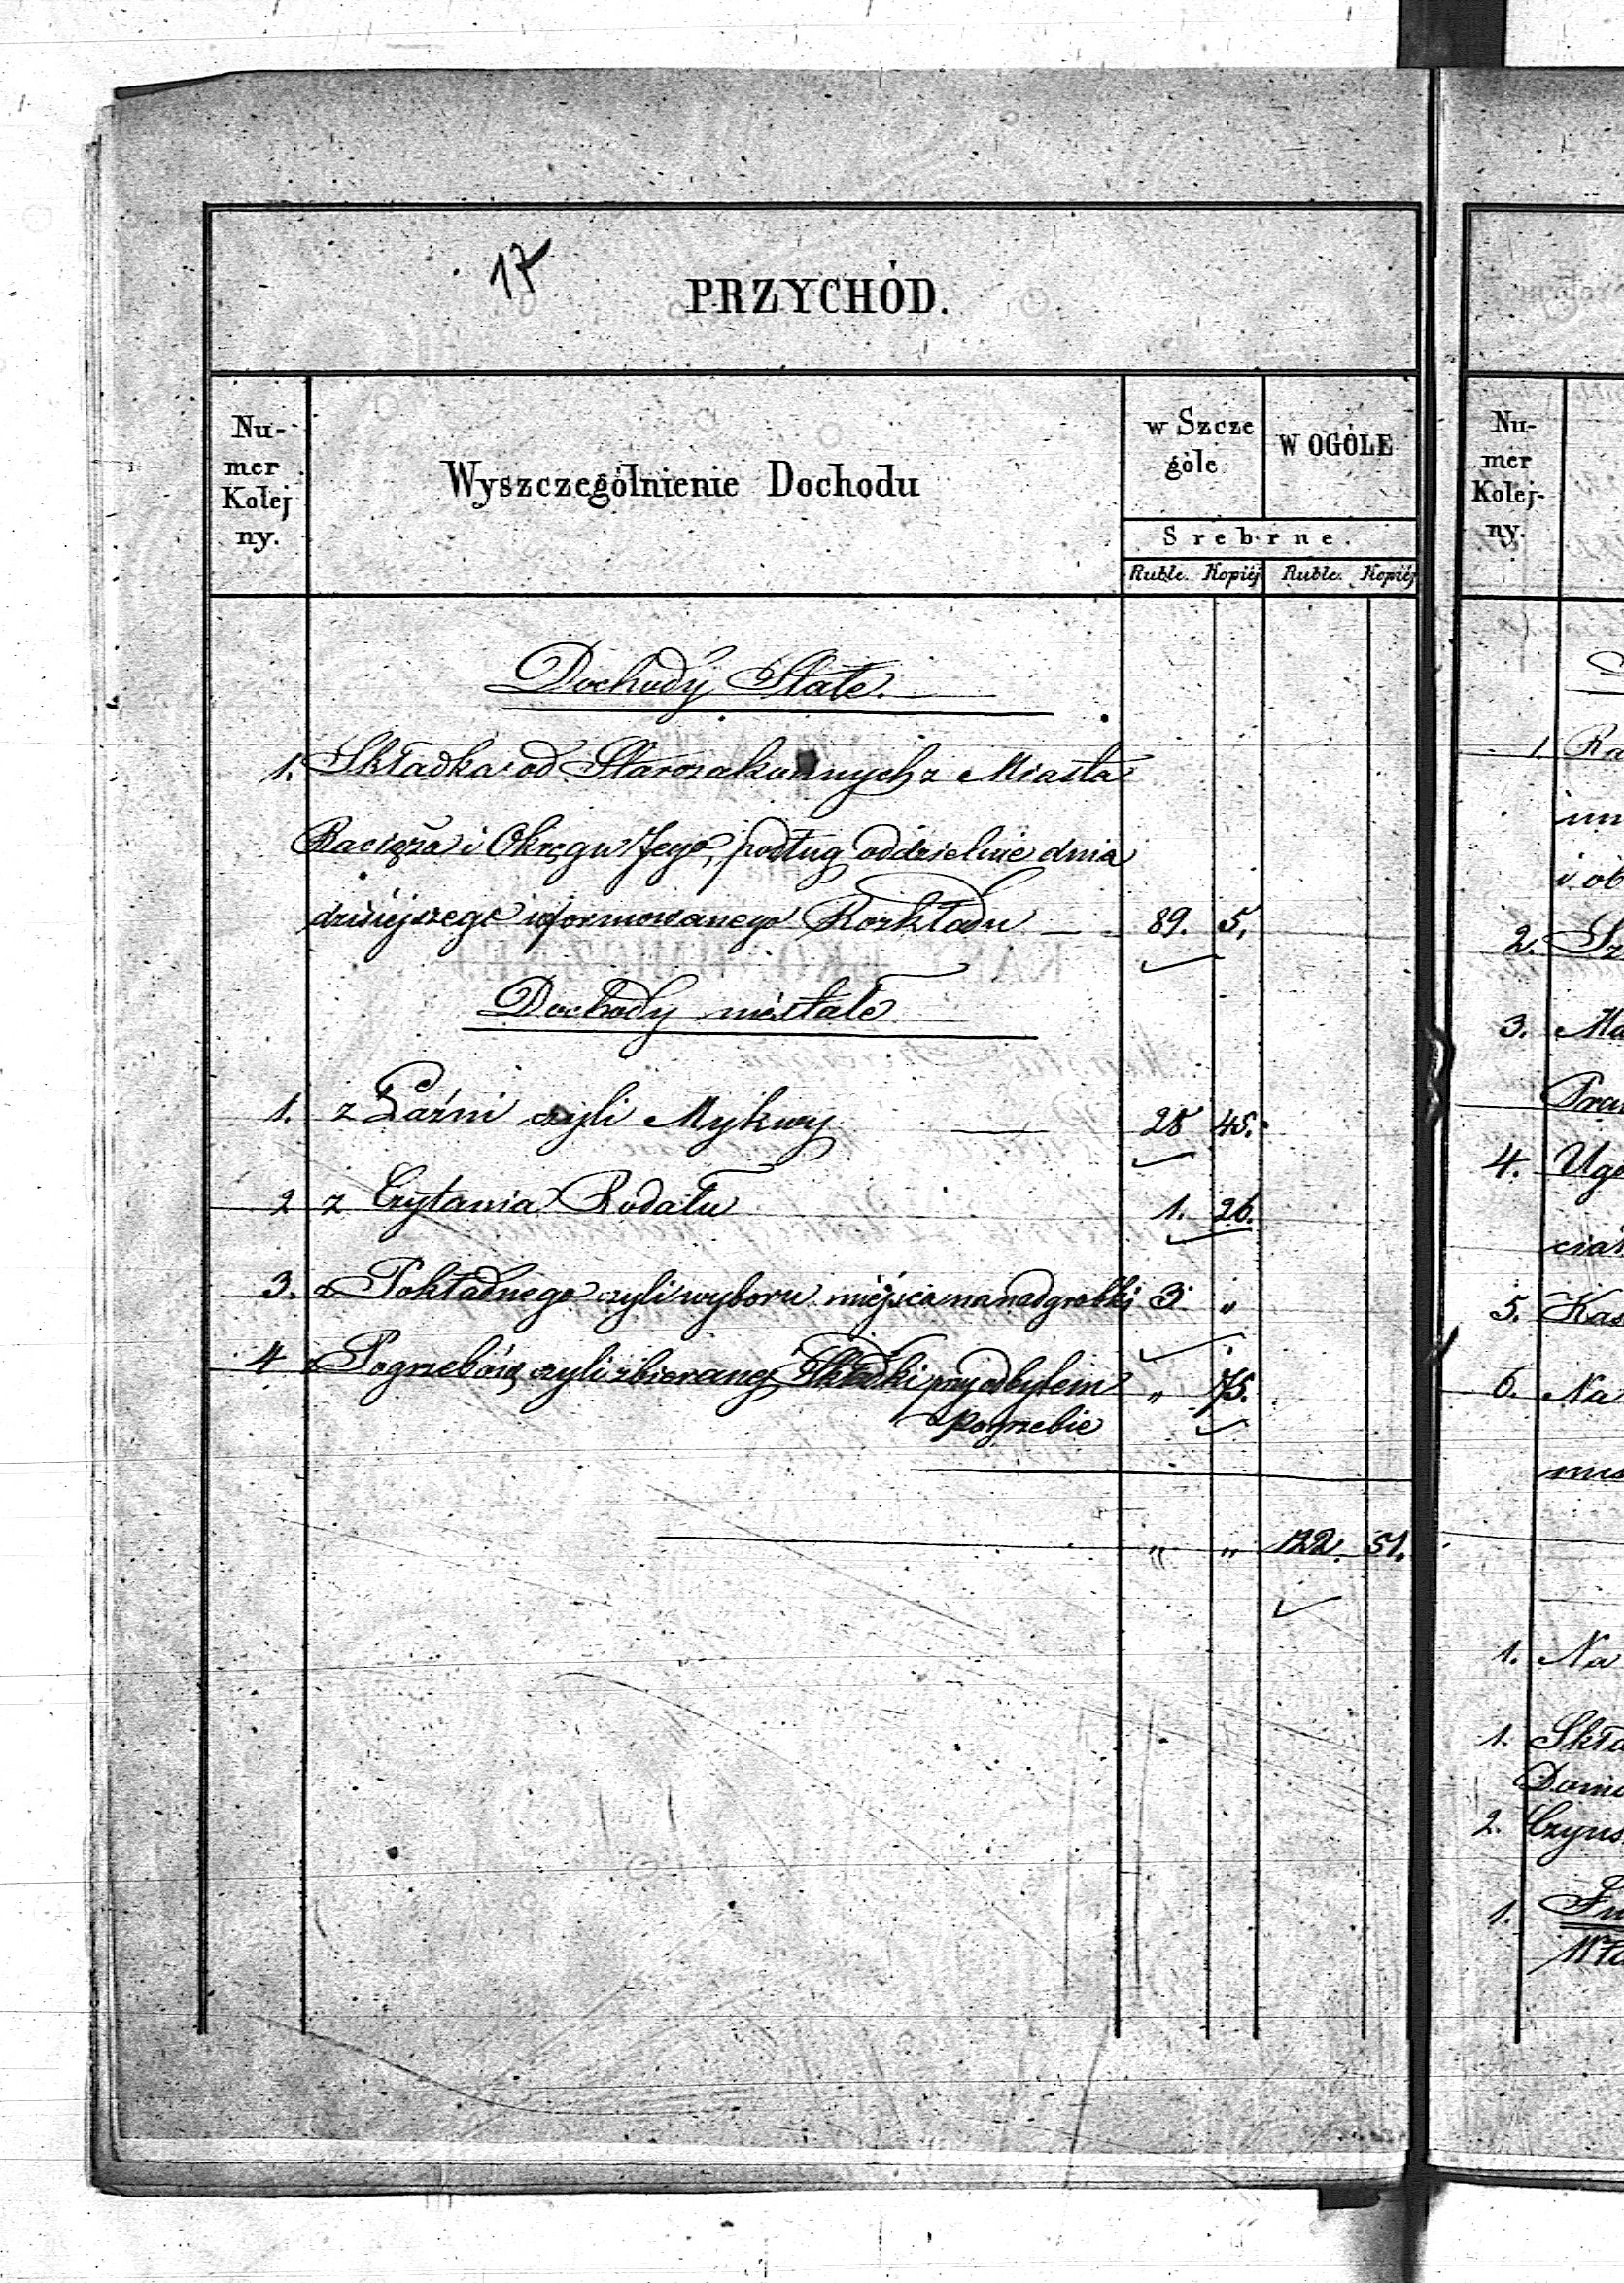 17
PRZYCHÓD.
Nu-
mer
Kolej
ny.
Wyszczególnienie Dochodu
w Szcze
góle
W OGÓLE
Srebrne.
Ruble. Kopiéj Ruble. Kopiéj
Dochody Stałe.
1. Składka od Starozakonnych z Miasta
Raciąża i Okręgu Jego, podług oddzielnie dnia
dzisiejszego uformowanego Rozkładu — 89. 5.
Dochody niestałe
1. z Łaźni czyli Mykwy — 28 45.
2 z Czytania Rodału 1. 26.
3. z Pokładnego czyli wyboru miejsca na nadgrobki 3 "
4 z Pogrzebów, czyli zbieranej Składki przy odbytem " 75.
pogrzebie
" " 122. 51.
Nu-
mer
Kolej-
ny.
1. Ra
i ob
2. Sz
3. Ma
4. Ugo
5. Kas
6. Na
1. Na
1. Skła
2. Czyns
1.